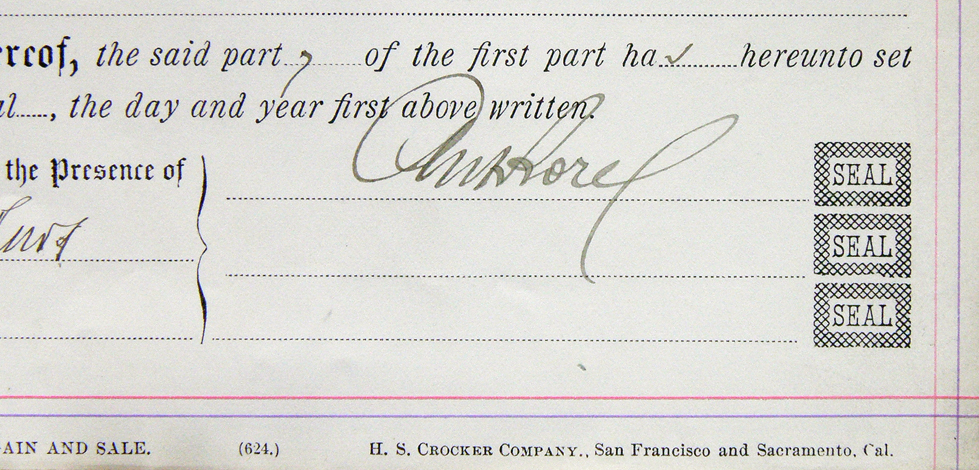 ereof, the said part y of the first part has hereunto set
al....., the day and year first above written.
the Presence of
SEAL
SEAL
SEAL
AIN AND SALE. (624.) H. S. CROCKER COMPANY., San Francisco and Sacramento, Cal.